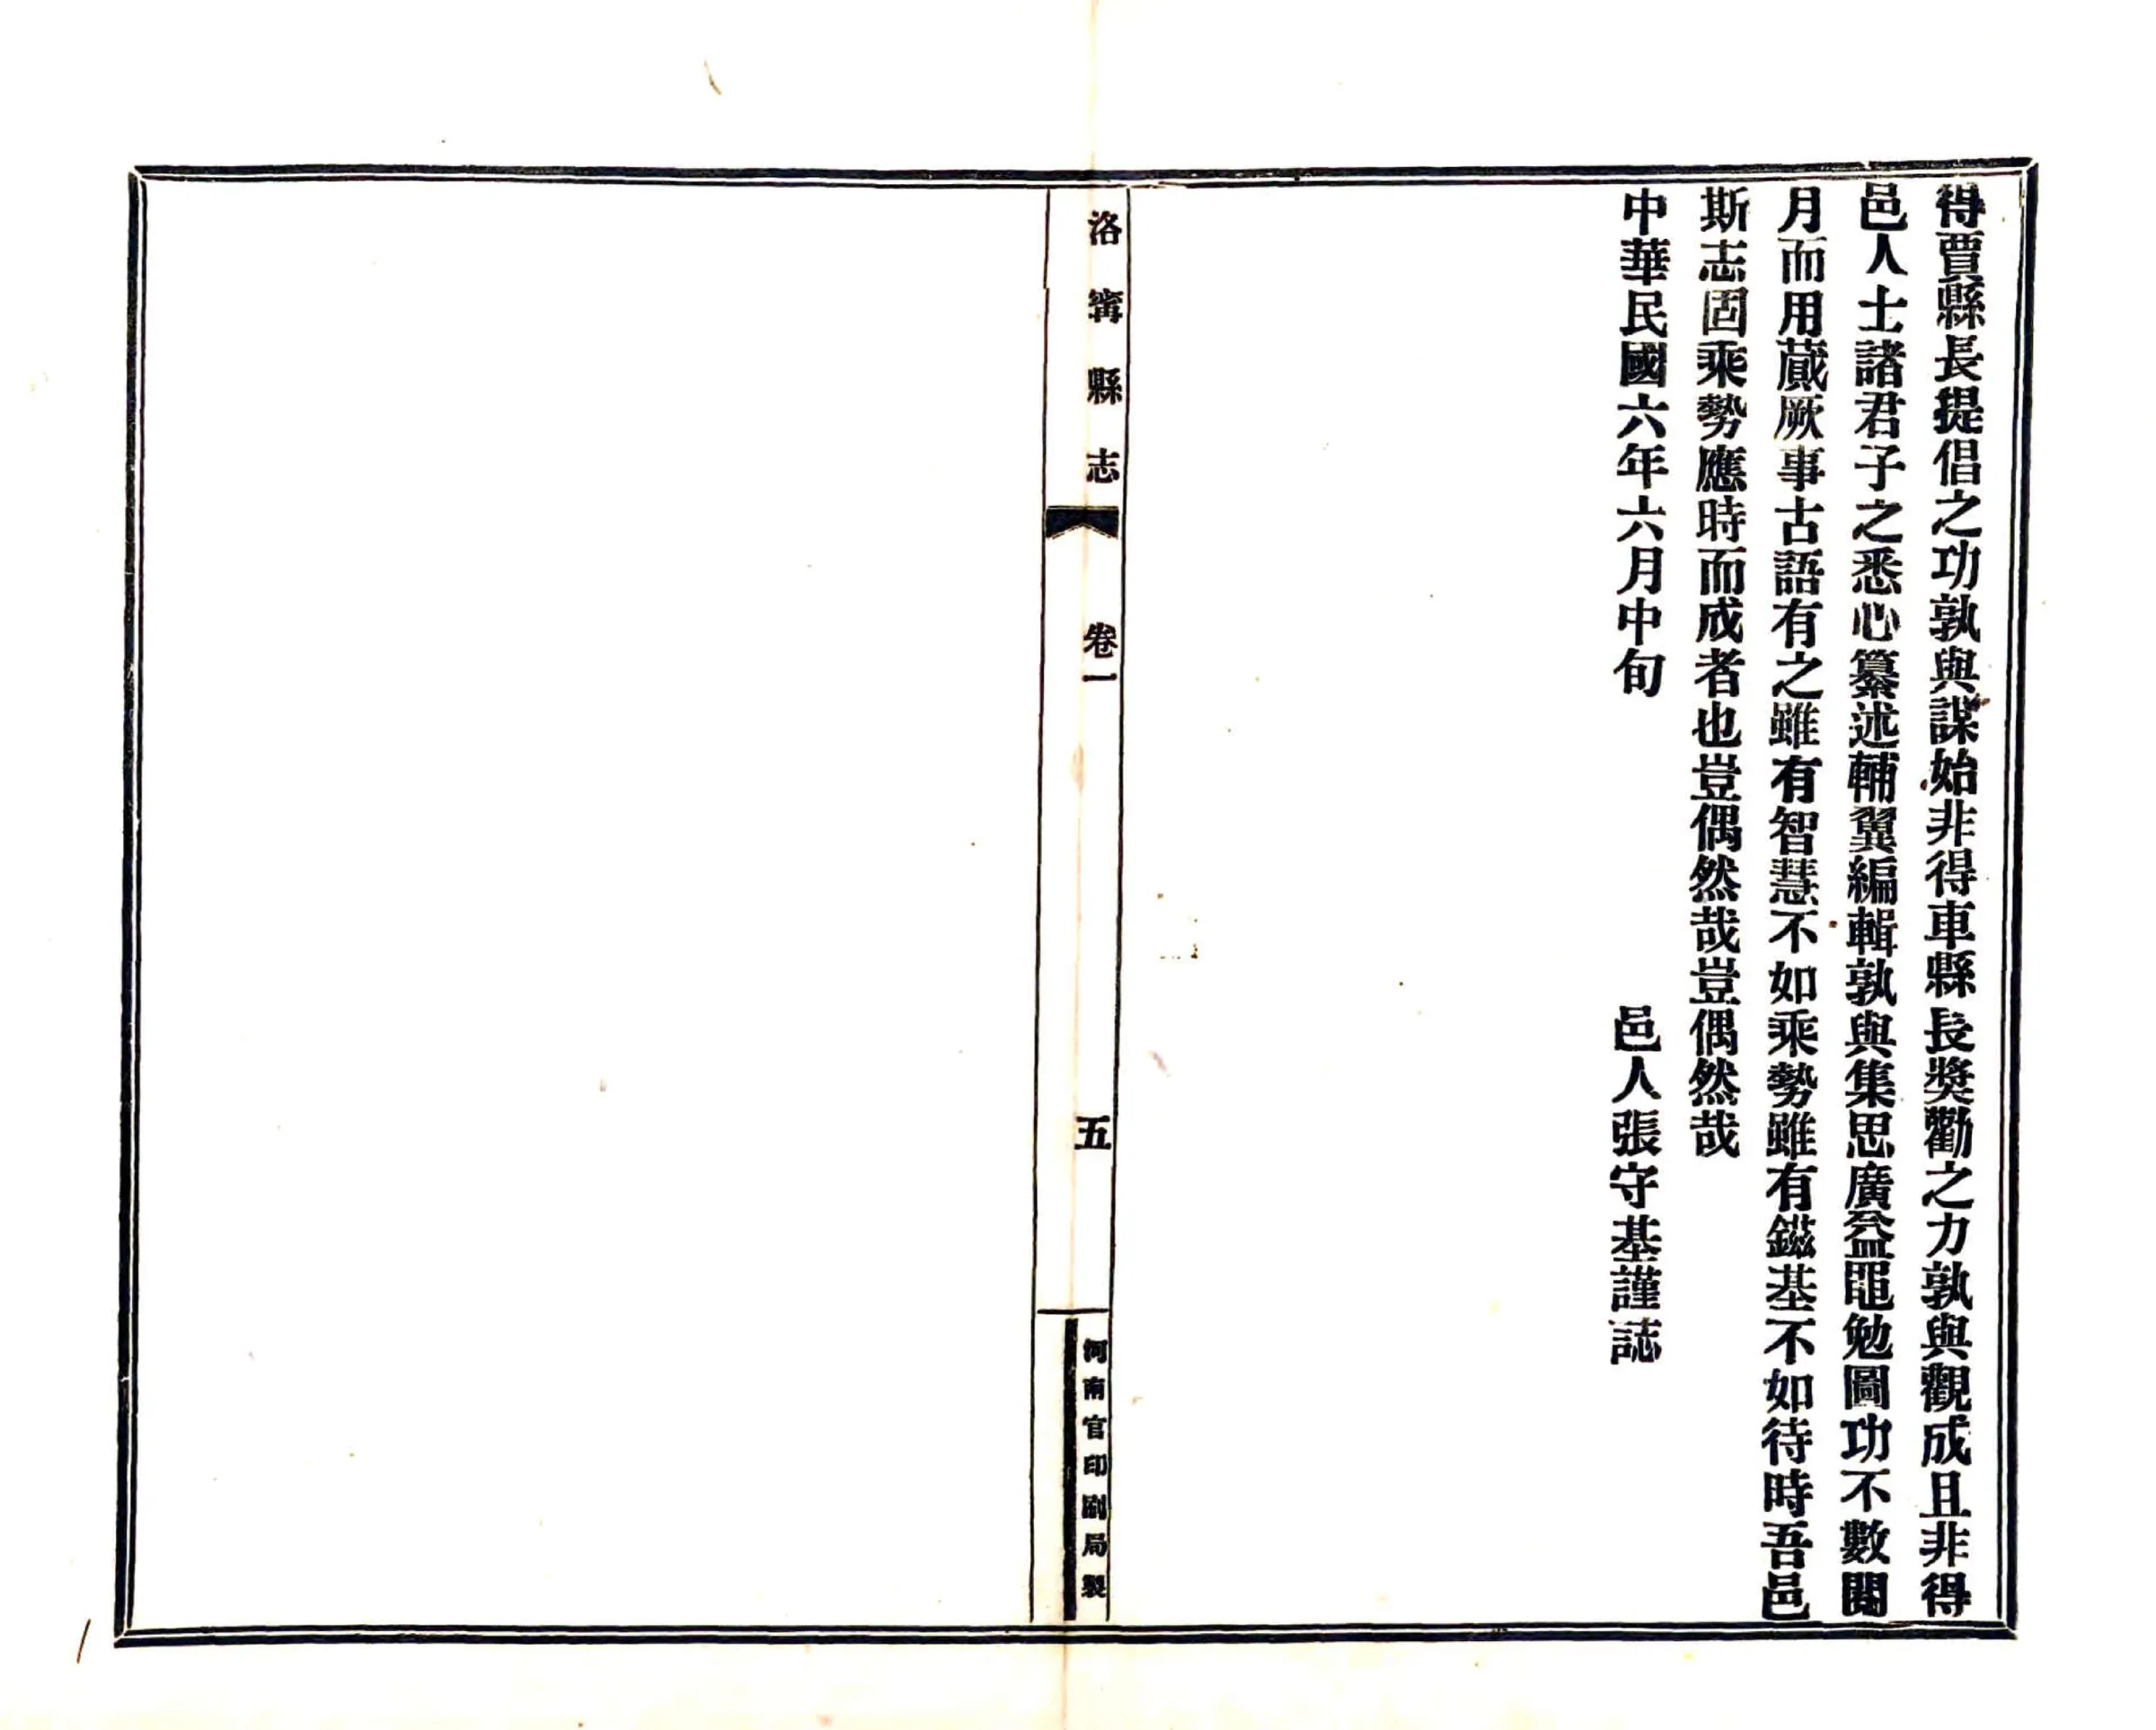 得賈縣長提倡之功孰與謀始非得車縣長奬勸之力孰與觀成且非得
邑人士諸君子之悉心纂述輔翼編輯孰與集思廣益黽勉圖功不數閱
月而用蕆厥事古語有之雖有智慧不如乘勢雖有鎡基不如待時吾邑
斯志固乘勢應時而成者也豈偶然哉豈偶然哉
中華民國六年六月中旬
邑人張守基謹誌
洛寗縣志
卷一
五
河南官印刷局製